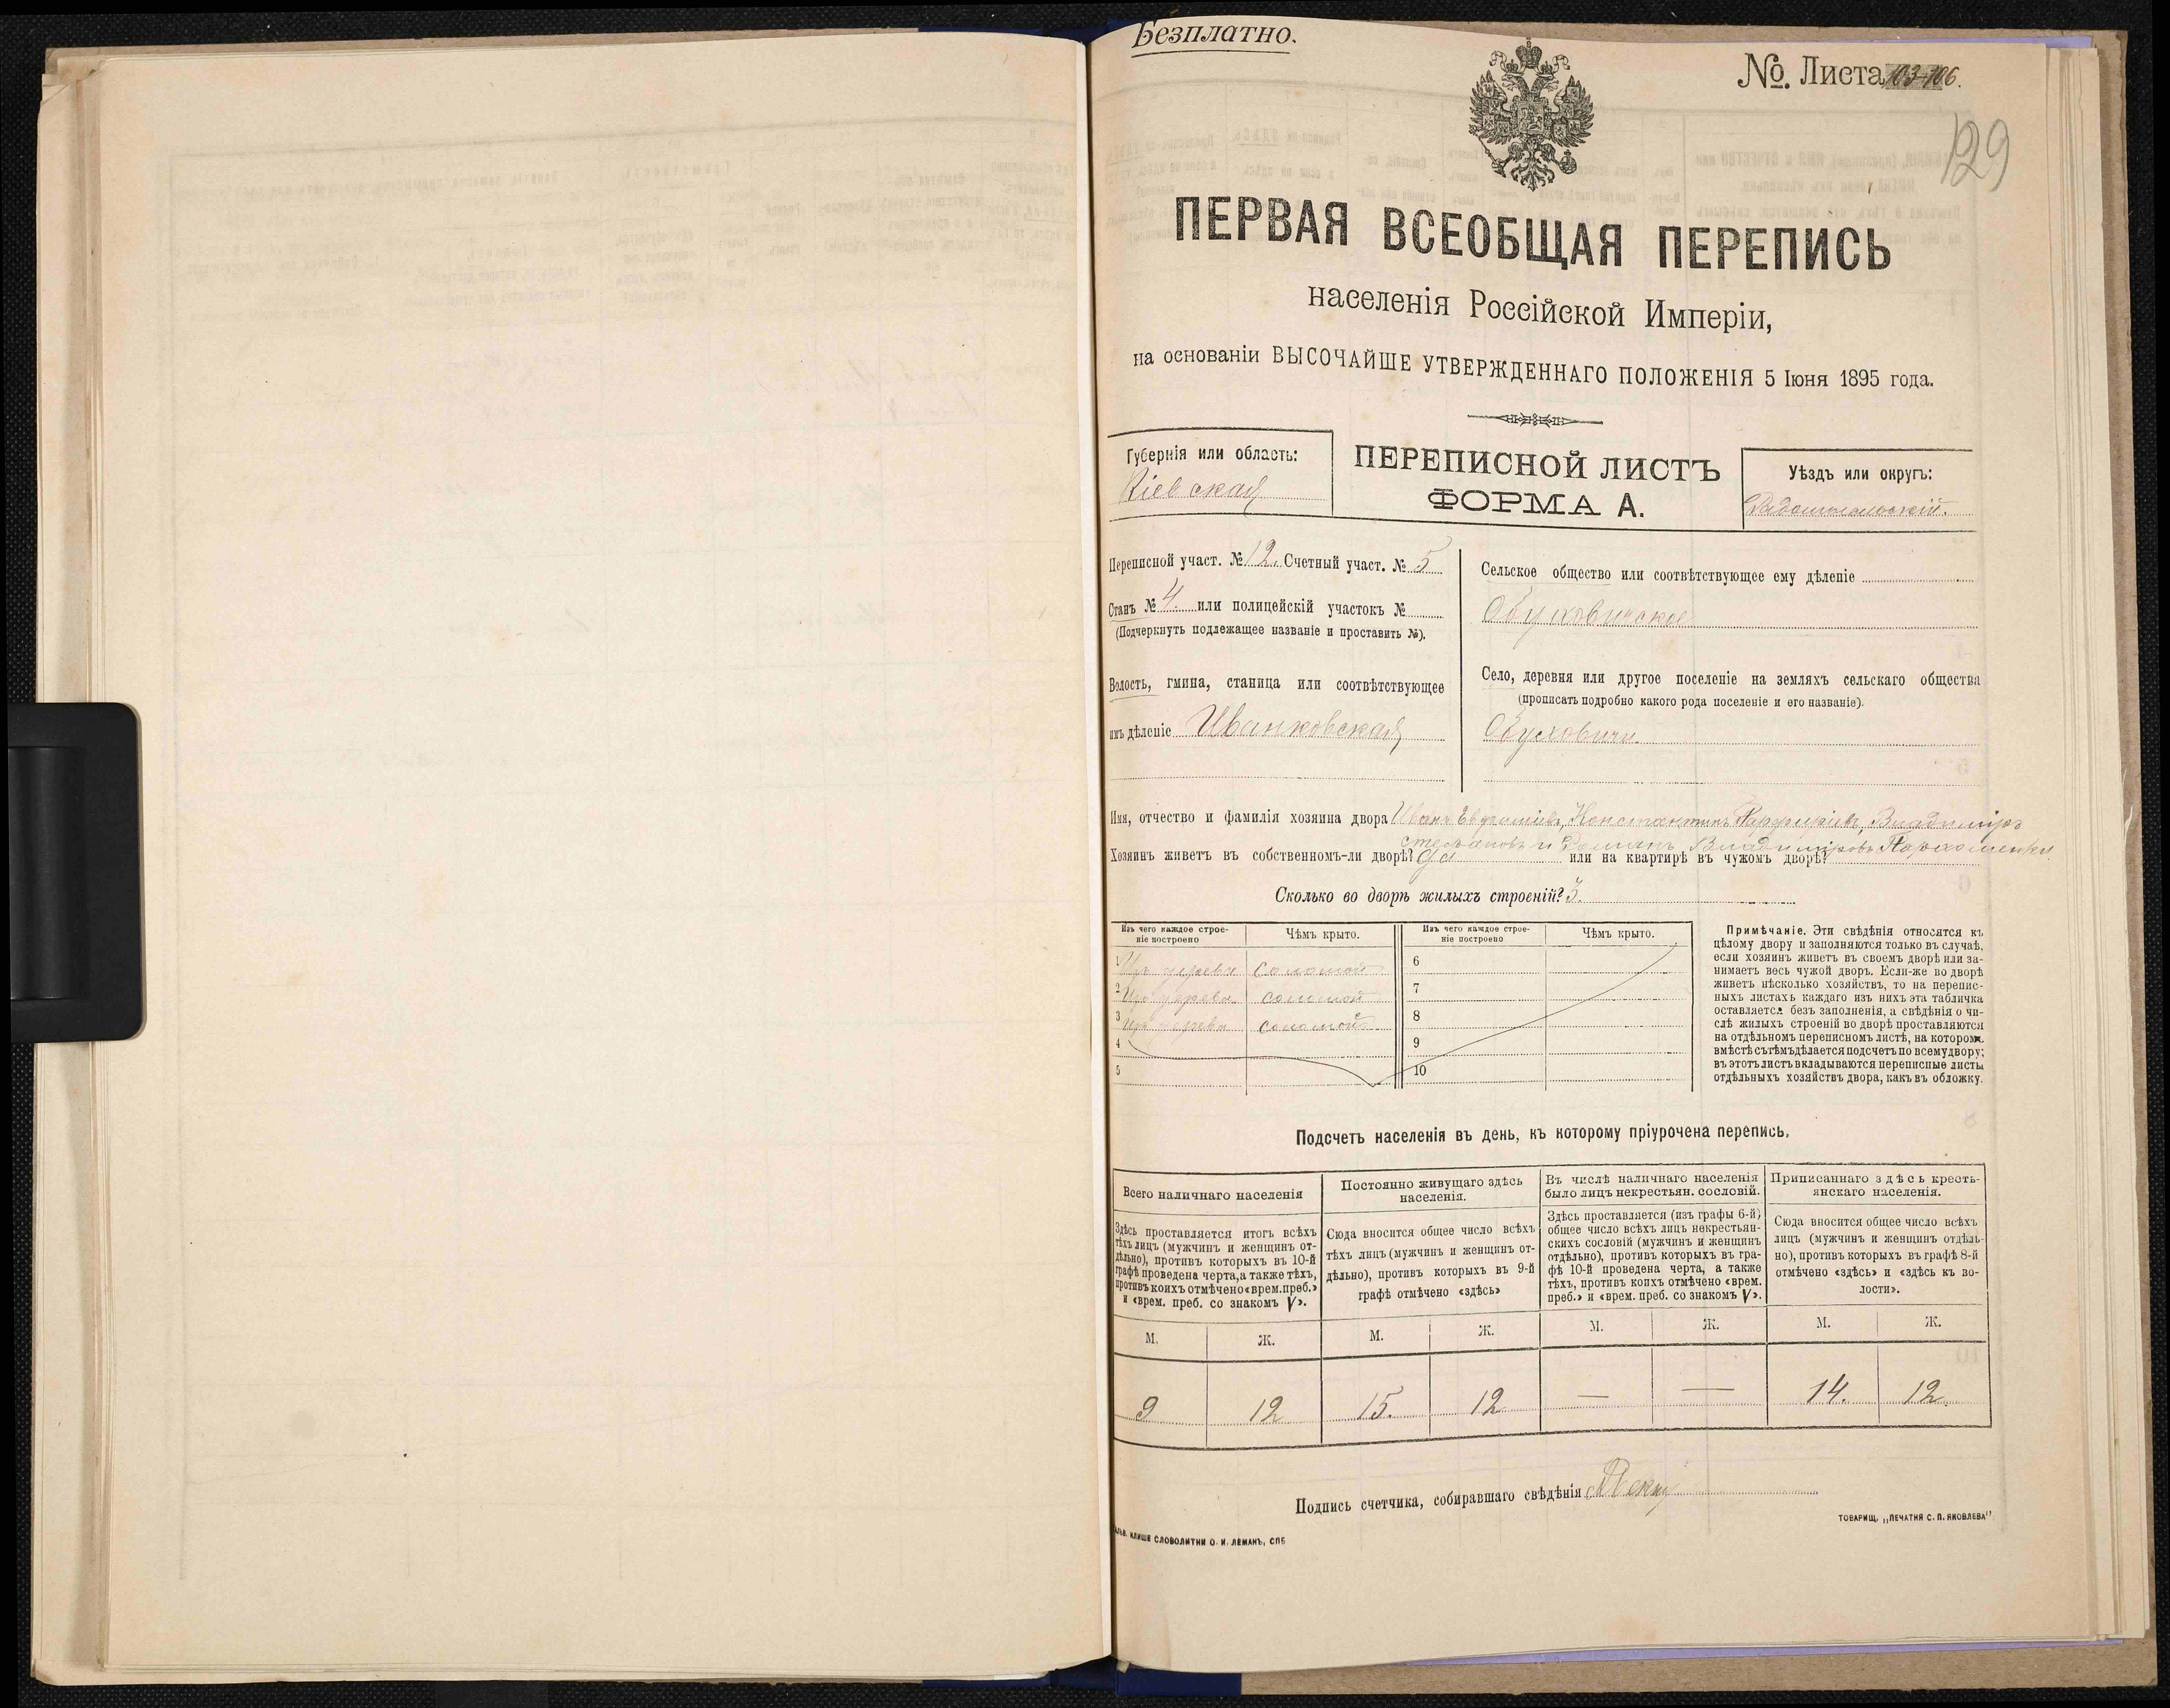 Безплатно.
№ Листа 103-106.
129
ПЕРВАЯ ВСЕОБЩАЯ ПЕРЕПИСЬ
населенія Россійской Имперіи,
на основаніи ВЫСОЧАЙШЕ УТВЕРЖДЕННАГО ПОЛОЖЕНІЯ 5 Іюня 1895 года.
Губернія или область:
Кіевская
ПЕРЕПИСНОЙ ЛИСТЪ
ФОРМА А.
Уѣздъ или округъ:
Радомысльскій.
Переписной участ. № 12. Счетный участ. № 5
Станъ № 4. или полицейскій участокъ №
(Подчеркнуть подлежащее названіе и проставить №).
Волость, гмина, станица или соотвѣтствующее
имъ дѣленіе Иванковская
Сельское общество или соотвѣтствующее ему дѣленіе
Обуховичское
Село, деревня или другое поселеніе на земляхъ сельскаго общества
(прописать подробно какого рода поселеніе и его названіе).
Обуховичи
Имя, отчество и фамилія хозяина двора Иванъ Евфиміевъ, Константинъ Парфиріевъ, Владиміръ
Степановъ и Романъ Владиміровъ Пархоменки
Хозяинъ живетъ въ собственномъ-ли дворѣ? да или на квартирѣ въ чужомъ дворѣ?
Сколько во дворѣ жилыхъ строеній? 3.
Изъ чего каждое строе-
ніе построено
Чѣмъ крыто.
Изъ чего каждое строе-
ніе построено
Чѣмъ крыто.
1 Изъ дерева соломой 6
2 Изъ дерева соломой 7
3 Изъ дерева соломой 8
4 9
5 10
Примѣчаніе. Эти свѣдѣнія относятся къ
цѣлому двору и заполняются только въ случаѣ,
если хозяинъ живетъ въ своемъ дворѣ или за-
нимаетъ весь чужой дворъ. Если-же во дворѣ
живетъ нѣсколько хозяйствъ, то на перепис-
ныхъ листахъ каждаго изъ нихъ эта табличка
оставляется безъ заполненія, а свѣдѣнія о чи-
слѣ жилыхъ строеній во дворѣ проставляются
на отдѣльномъ переписномъ листѣ, на которомъ
вмѣстѣ съ тѣмъ дѣлается подсчетъ по всему двору;
въ этотъ листъ вкладываются переписные листы
отдѣльныхъ хозяйствъ двора, какъ въ обложку.
Подсчетъ населенія въ день, къ которому пріурочена перепись.
Всего наличнаго населенія
Здѣсь проставляется итогъ всѣхъ
тѣхъ лицъ (мужчинъ и женщинъ от-
дѣльно), противъ которыхъ въ 10-й
графѣ проведена черта, а также тѣхъ,
противъ коихъ отмѣчено «врем. преб.»
и «врем. преб. со знакомъ V».
Постоянно живущаго здѣсь
населенія.
Сюда вносится общее число всѣхъ
тѣхъ лицъ (мужчинъ и женщинъ от-
дѣльно), противъ которыхъ въ 9-й
графѣ отмѣчено «здѣсь»
Въ числѣ наличнаго населенія
было лицъ некрестьян. сословій.
Здѣсь проставляется (изъ графы 6-й)
общее число всѣхъ лицъ некрестьян-
скихъ сословій (мужчинъ и женщинъ
отдѣльно), противъ которыхъ въ гра-
фѣ 10-й проведена черта, а также
тѣхъ, противъ коихъ отмѣчено «врем.
преб.» и «врем. преб. со знакомъ V».
Приписаннаго здѣсь кресть-
янскаго населенія.
Сюда вносится общее число всѣхъ
лицъ (мужчинъ и женщинъ отдѣль-
но), противъ которыхъ въ графѣ 8-й
отмѣчено «здѣсь» и «здѣсь къ во-
лости».
М. Ж. М. Ж. М. Ж. М. Ж.
9 12 15. 12 — — 14. 12.
Подпись счетчика, собиравшаго свѣдѣнія
КЛИШЕ СЛОВОЛИТНИ О. И. ЛЕМАНЪ, СПБ
ТОВАРИЩ. „ПЕЧАТНЯ С. П. ЯКОВЛЕВА"